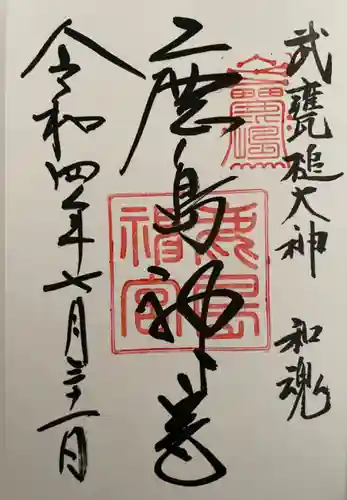 武甕槌大神 和魂
鹿島神宮
鹿島神宮
令和四年七月三十一日